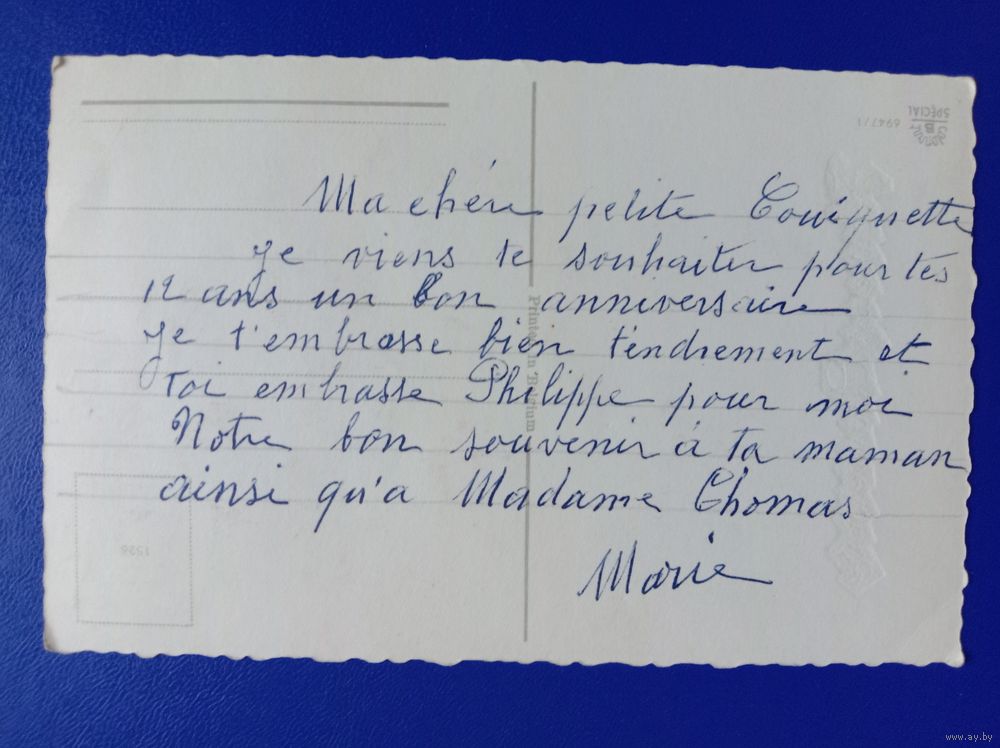 Ma chére petite Couiquette
Je viens te souhaiter pour tes
12 ans un bon anniversaire
Je t'embrasse bien tendrement et
Toi embrasse Philippe pour moi
Notre bon souvenir à ta maman
ainsi qu'a Madame Thomas
Marie
Printed in Belgium
6947/1
SPECIAL
B
1526
www.ay.by